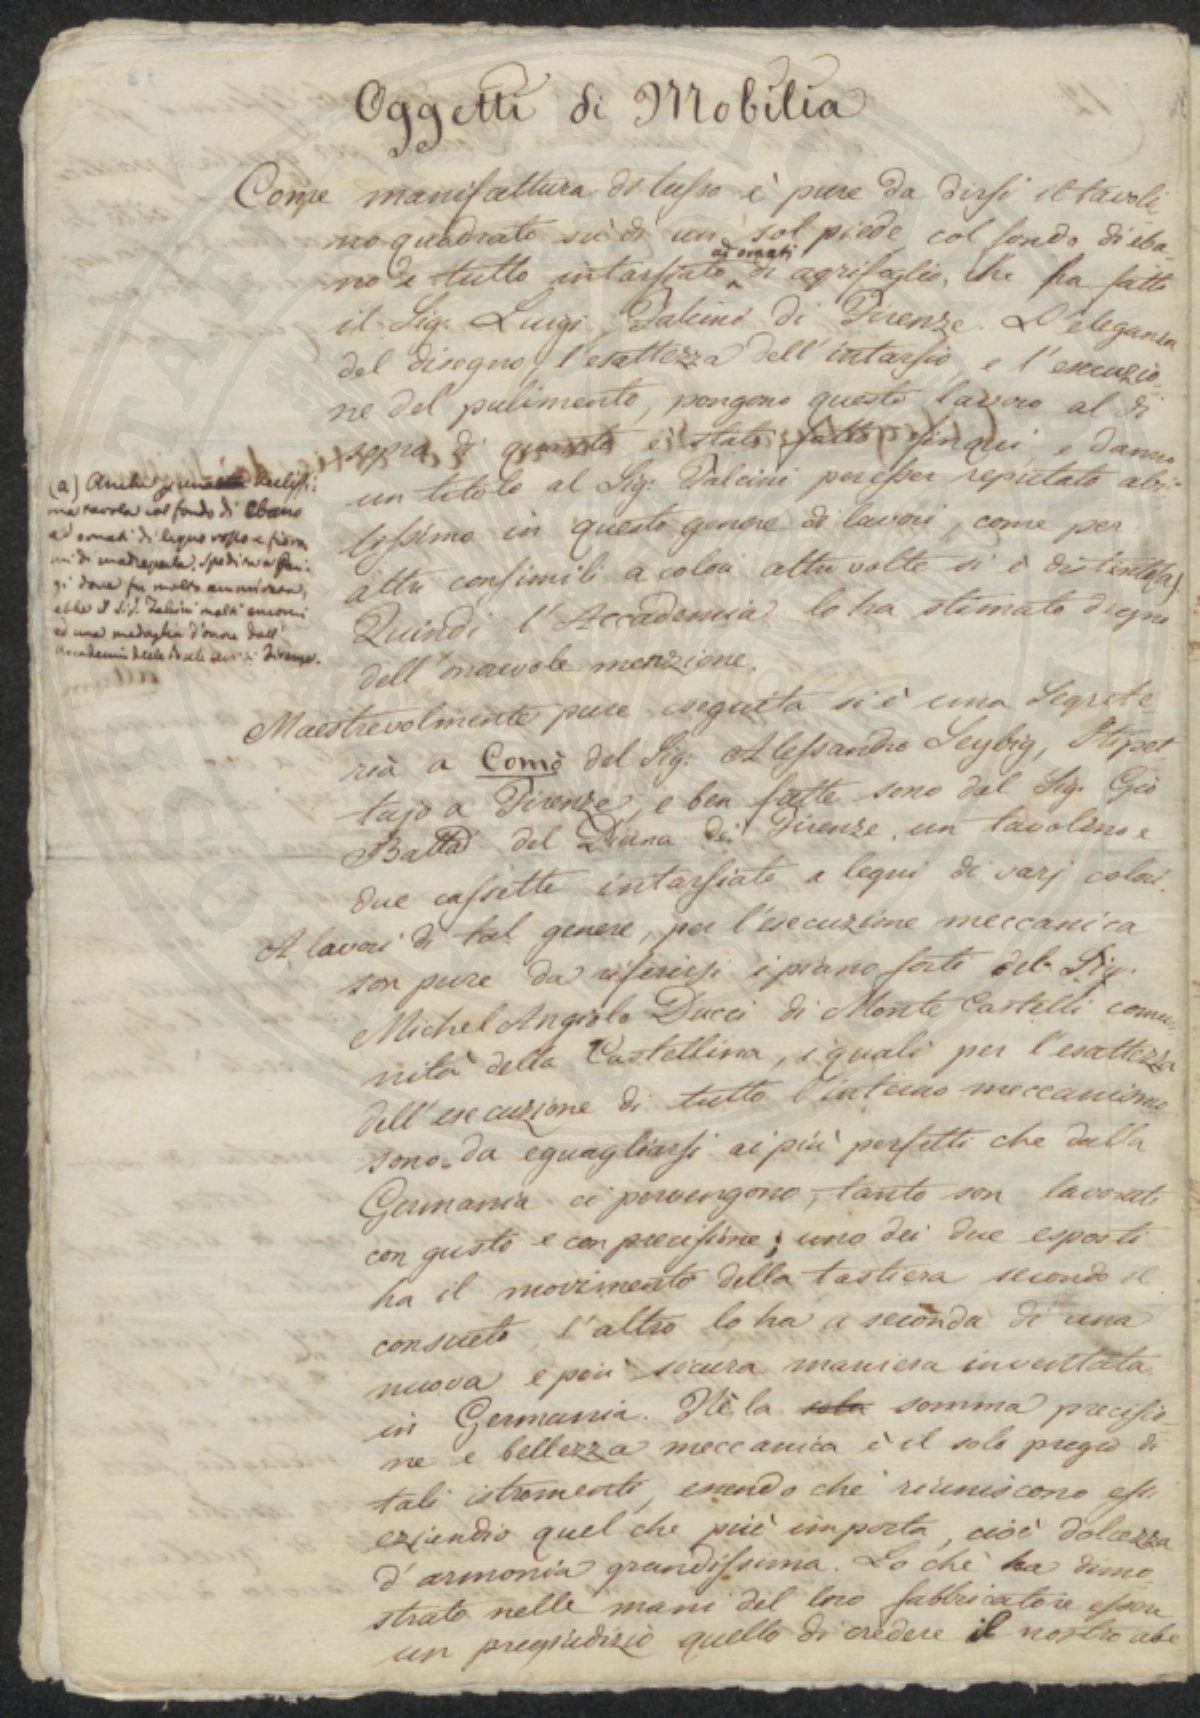 Oggetti di Mobilia
Come manifattura di lusso è pure da dirsi il tavoli
no quadrato sù di un sol piede, col fondo di eba-
no e tutto intarsiato ad ornati di agrifoglio, che ha fatto
il Sig. Luigi Falcini di Firenze. L'eleganza
del disegno, l'esattezza dell'intarsio, e l'esecuzio
ne del pulimento, pongono questo lavoro al di
sopra di quanto è stato fatto finqui, e danno
un titolo al Sig. Falcini per esser reputato abi-
lissimo in questo genere di lavori, come per
altri consimili a colori altre volte si è distinto (a).
Quindi l'Accademia lo ha stimato degno
dell'onorevole menzione.
(a) Anche
ma tavola col fondo di Ebano
ad ornati di legno rosso e fiora
mi di madreperla, spedita a Pari-
gi dove fu molto ammirata,
ebbe il Sig. Falcini molti encomi
ed una medaglia d'onore dall'
Accademia delle Belle Arti di Firenze.
Maestrevolmente pure eseguita si è una Segrete
ria a Comò del Sig. Alessandro Seybig, Stipet
tajo a Firenze, e ben fatte sono dal Sig. Gio
Batta del Diana di Firenze, un tavolino e
due cassette intarsiate a legni di varj colori.
A lavori di tal genere, per l'esecuzione meccanica
son pure da riferirsi i piano forti del Sig.
Michel Angiolo Ducci di Monte Castelli comu
nità della Castellina, i quali per l'esattezza
dell'esecuzione di tutto l'interno meccanismo
sono da eguagliarsi ai più perfetti che dalla
Germania ci pervengono, tanto son lavorati
con gusto e con precisione; uno dei due esposti
ha il movimento della tastiera secondo il
consueto, l'altro lo ha a seconda di una
nuova e più sicura maniera inventata
in Germania. Nè la sola somma precisio
ne e bellezza meccanica è il solo pregio di
tali istromenti, essendo che riuniscono essi
eziandio quel che più importa, cioè dolcezza
d'armonia grandissima. Lo che ha dimo
strato nelle mani del loro fabbricatore essere
un pregiudizio quello di credere il nostro abe